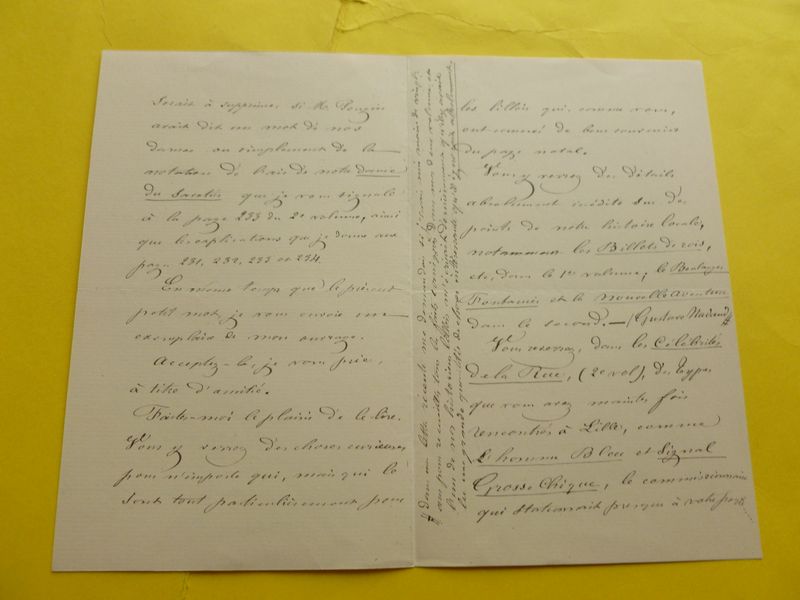 serait à supprimer si Mr Pougin
avait dit un mot de nos
danses ou simplement de la
notation de l'air de notre danse
du Sacotin que je vous signale
à la page 233 du 2e volume, ainsi
que les explications que je donne aux
pages 231, 232, 233 et 234.
En même temps que le présent
petit mot, je vous envoie un
exemplaire de mon ouvrage.
Acceptez-le, je vous prie,
à titre d'amitié.
Faites-moi le plaisir de le lire.
Vous y verrez des choses curieuses
pour n'importe qui, mais qui le
sont tout particulièrement pour
les lillois qui, comme vous,
ont conservé de bons souvenirs
du pays natal.
Vous y verrez des détails
absolument inédits sur des
points de notre histoire locale,
notamment les Billets de rois,
etc, dans le 1er volume, le
Fontaines et la Nouvelle Aventure
dans le second. — (Gustave Nadaud #
Vous reverrez, dans les Célébrités
de la Rue, (2e vol), des types
que vous avez maintes fois
rencontrés à Lille, comme
L'homme Bleu et
Grosse Chique, le commissionnaire
qui stationnait presque à votre porte
# dans une lettre récente me demandait si j'avais mis moins de vingt
ans pour recueillir tous les faits